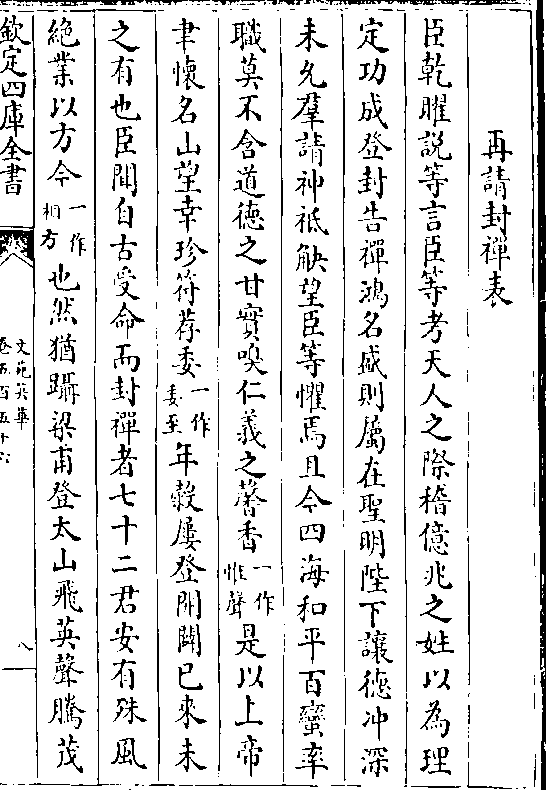 再請封禪表
臣乾曜説等言臣等考天人之際稽億兆之姓以為理
定功成登封告禪鴻名盛則屬在聖明陛下讓德冲深
未允羣請神祇觖望臣等懼焉且今四海和平百蠻率
職莫不含道德之甘實嗅仁義之馨香一作惟聲是以上帝
聿懷名山望幸珍符荐委一作委至年穀屢登開闢已來未
之有也臣聞自古受命而封禪者七十二君安有殊風
絶業以方今一作相方也然猶躡梁甫登太山飛英聲騰茂
欽定四庫全書
文苑英華
卷五百五十六
八